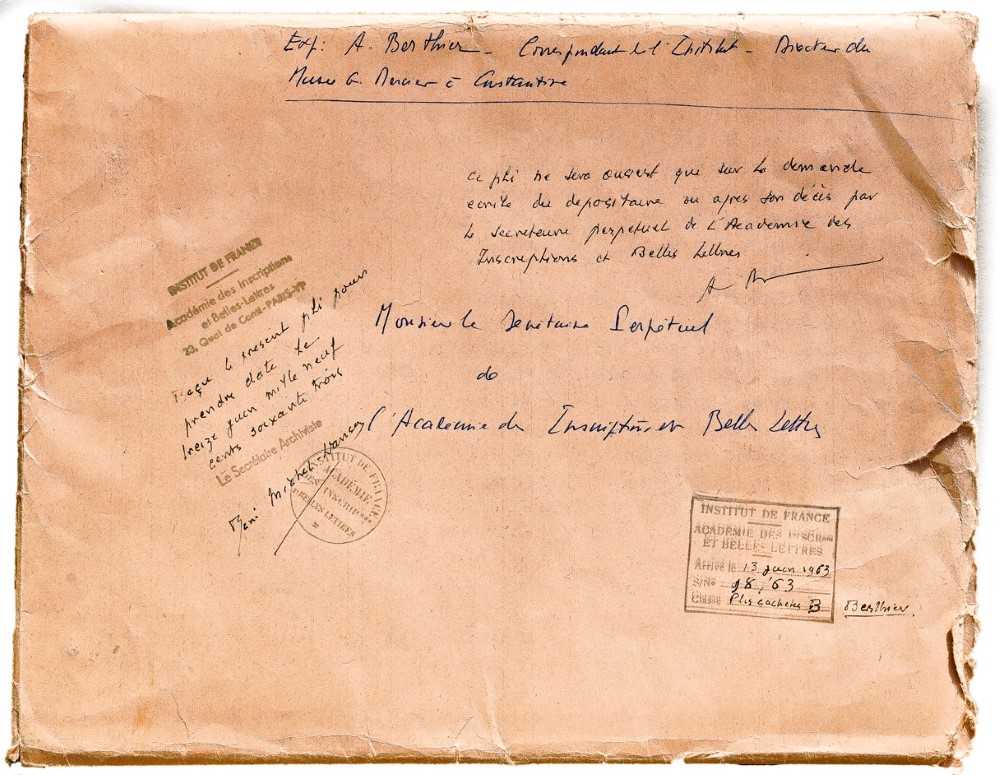 Exp: A. Berthier - Correspondant de l'Institut - Directeur du
Musée G. Mercier à Constantine
ce pli ne sera ouvert que sur la demande
ecrite du depositaire ou apres son décès par
le secretaire perpetuel de l'Academie des
Inscriptions et Belles Lettres
Monsieur le Secrétaire Perpétuel
de
l'Academie des Inscriptions et Belles Lettres
INSTITUT DE FRANCE
Académie des Inscriptions
et Belles-Lettres
23, Quai de Conti-PARIS-VIe
Reçu le présent pli pour
prendre date le
treize juin mille neuf
cents soixante trois
Le Secrétaire Archiviste
INSTITUT DE FRANCE
ACADÉMIE
DES INSCRIP ONS
BELLES LETTRES
INSTITUT DE FRANCE
ACADÉMIE DES INSCR
ET BELLES LETTRES
Arrivé le 13 juin 1963
S/No 98,'63
Classe Plis cachetés B Berthier